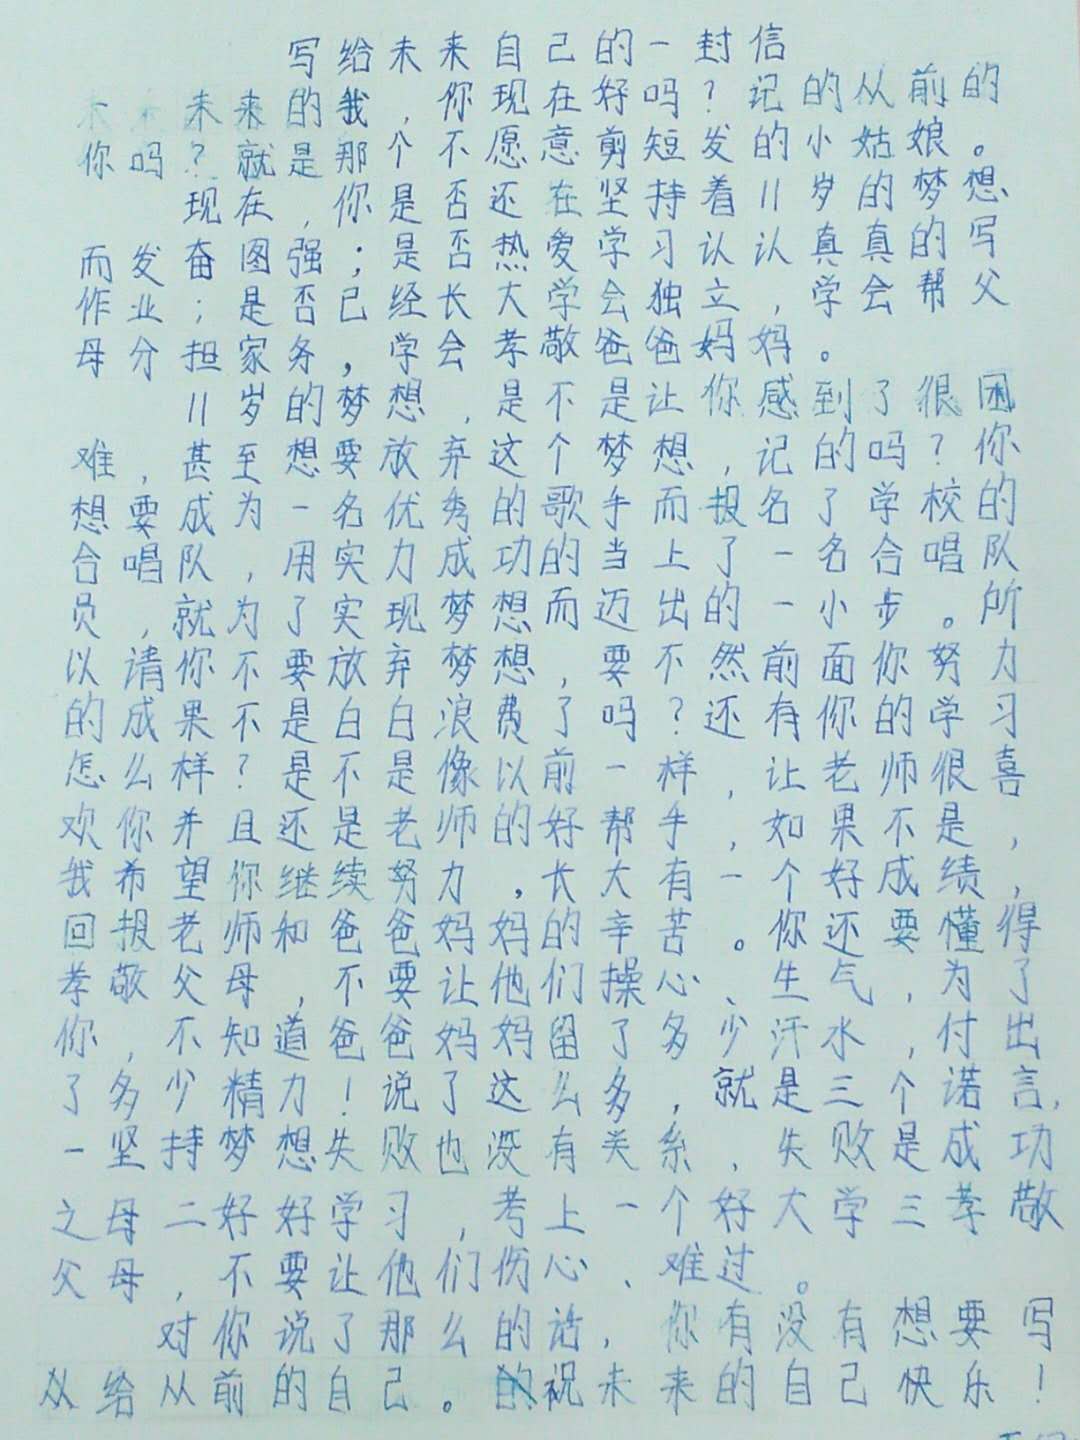 写给未来自己的一封信
未来的我，你现在好吗？记的从前的
你吗？就是那个不愿意剪短发的小姑娘。
现在，你是否还在坚持着11岁的梦想
而发奋图强；是否热爱学习认认真真的写
作业；是否已经长大学会独立，学会帮父
母分担家务，学会孝敬爸爸妈妈。
11岁的梦想，是不是让你感到了很困
难，甚至想要放弃这个梦想，记的吗？你
想要成为一名优秀的歌手而报名了学校的
合唱队，用实力成功的当上了一名合唱队
员，就为了实现梦想而迈出的一小步。所
以请你不要放弃梦想，要不然前面你努力
的成果不是白白浪费了吗？还有你的学习
怎么样？是不是像以前一样，让老师很喜
欢你并且还是老师的好帮手，如果不是，
我希望你继续努力，长大有一个好成绩，
回报老师和爸爸妈妈的辛苦。你还要懂得
孝敬父母，不要让他们操心、生气，为了
你，不知道爸爸妈妈留了多少汗水，付出
了多少精力！说了这么多，就是三个诺言，
一坚持梦想失败也没有关系，失败是成功
之母二好好学习，考上一个好大学三孝敬
父母，不要让他们伤心、难过。
对你说了那么的话，你有没有想要写
给从前的自己。祝未来的自己快乐！